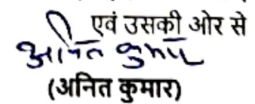 एवं उसकी ओर से
अनित कुमार
(अनित कुमार)